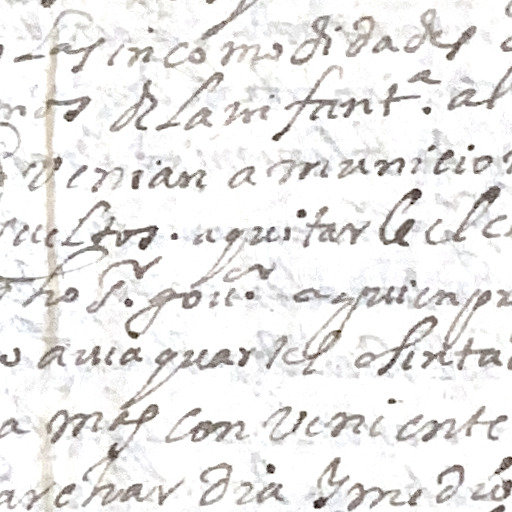 las incomodidades
de la infant.ª al
venian a municion
sueltos. a quitarle el
dho s.r gou.or a quien pr
o auia quartel
a mas conveniente
archar dia y medio